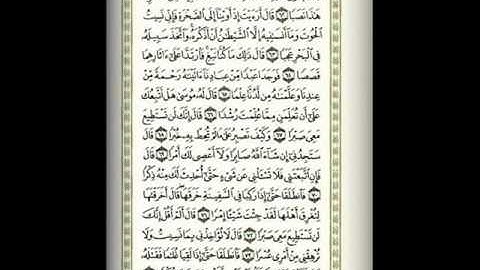 هَٰذَا نَصَبًا ٦٢ قَالَ أَرَءَيْتَ إِذْ أَوَيْنَآ إِلَى ٱلصَّخْرَةِ فَإِنِّى نَسِيتُ
ٱلْحُوتَ وَمَآ أَنسَىٰنِيهُ إِلَّا ٱلشَّيْطَٰنُ أَنْ أَذْكُرَهُۥ وَٱتَّخَذَ سَبِيلَهُۥ
فِى ٱلْبَحْرِ عَجَبًا ٦٣ قَالَ ذَٰلِكَ مَا كُنَّا نَبْغِ فَٱرْتَدَّا عَلَىٰٓ ءَاثَارِهِمَا
قَصَصًا ٦٤ فَوَجَدَا عَبْدًا مِّنْ عِبَادِنَآ ءَاتَيْنَٰهُ رَحْمَةً مِّنْ
عِندِنَا وَعَلَّمْنَٰهُ مِن لَّدُنَّا عِلْمًا ٦٥ قَالَ لَهُۥ مُوسَىٰ هَلْ أَتَّبِعُكَ
عَلَىٰٓ أَن تُعَلِّمَنِ مِمَّا عُلِّمْتَ رُشْدًا ٦٦ قَالَ إِنَّكَ لَن تَسْتَطِيعَ
مَعِىَ صَبْرًا ٦٧ وَكَيْفَ تَصْبِرُ عَلَىٰ مَا لَمْ تُحِطْ بِهِۦ خُبْرًا ٦٨ قَالَ
سَتَجِدُنِىٓ إِن شَآءَ ٱللَّهُ صَابِرًا وَلَآ أَعْصِى لَكَ أَمْرًا ٦٩ قَالَ
فَإِنِ ٱتَّبَعْتَنِى فَلَا تَسْـَٔلْنِى عَن شَىْءٍ حَتَّىٰٓ أُحْدِثَ لَكَ مِنْهُ ذِكْرًا
٧٠ فَٱنطَلَقَا حَتَّىٰٓ إِذَا رَكِبَا فِى ٱلسَّفِينَةِ خَرَقَهَا قَالَ أَخَرَقْتَهَا
لِتُغْرِقَ أَهْلَهَا لَقَدْ جِئْتَ شَيْـًٔا إِمْرًا ٧١ قَالَ أَلَمْ أَقُلْ إِنَّكَ
لَن تَسْتَطِيعَ مَعِىَ صَبْرًا ٧٢ قَالَ لَا تُؤَاخِذْنِى بِمَا نَسِيتُ وَلَا
تُرْهِقْنِى مِنْ أَمْرِى عُسْرًا ٧٣ فَٱنطَلَقَا حَتَّىٰٓ إِذَا لَقِيَا غُلَٰمًا فَقَتَلَهُۥ